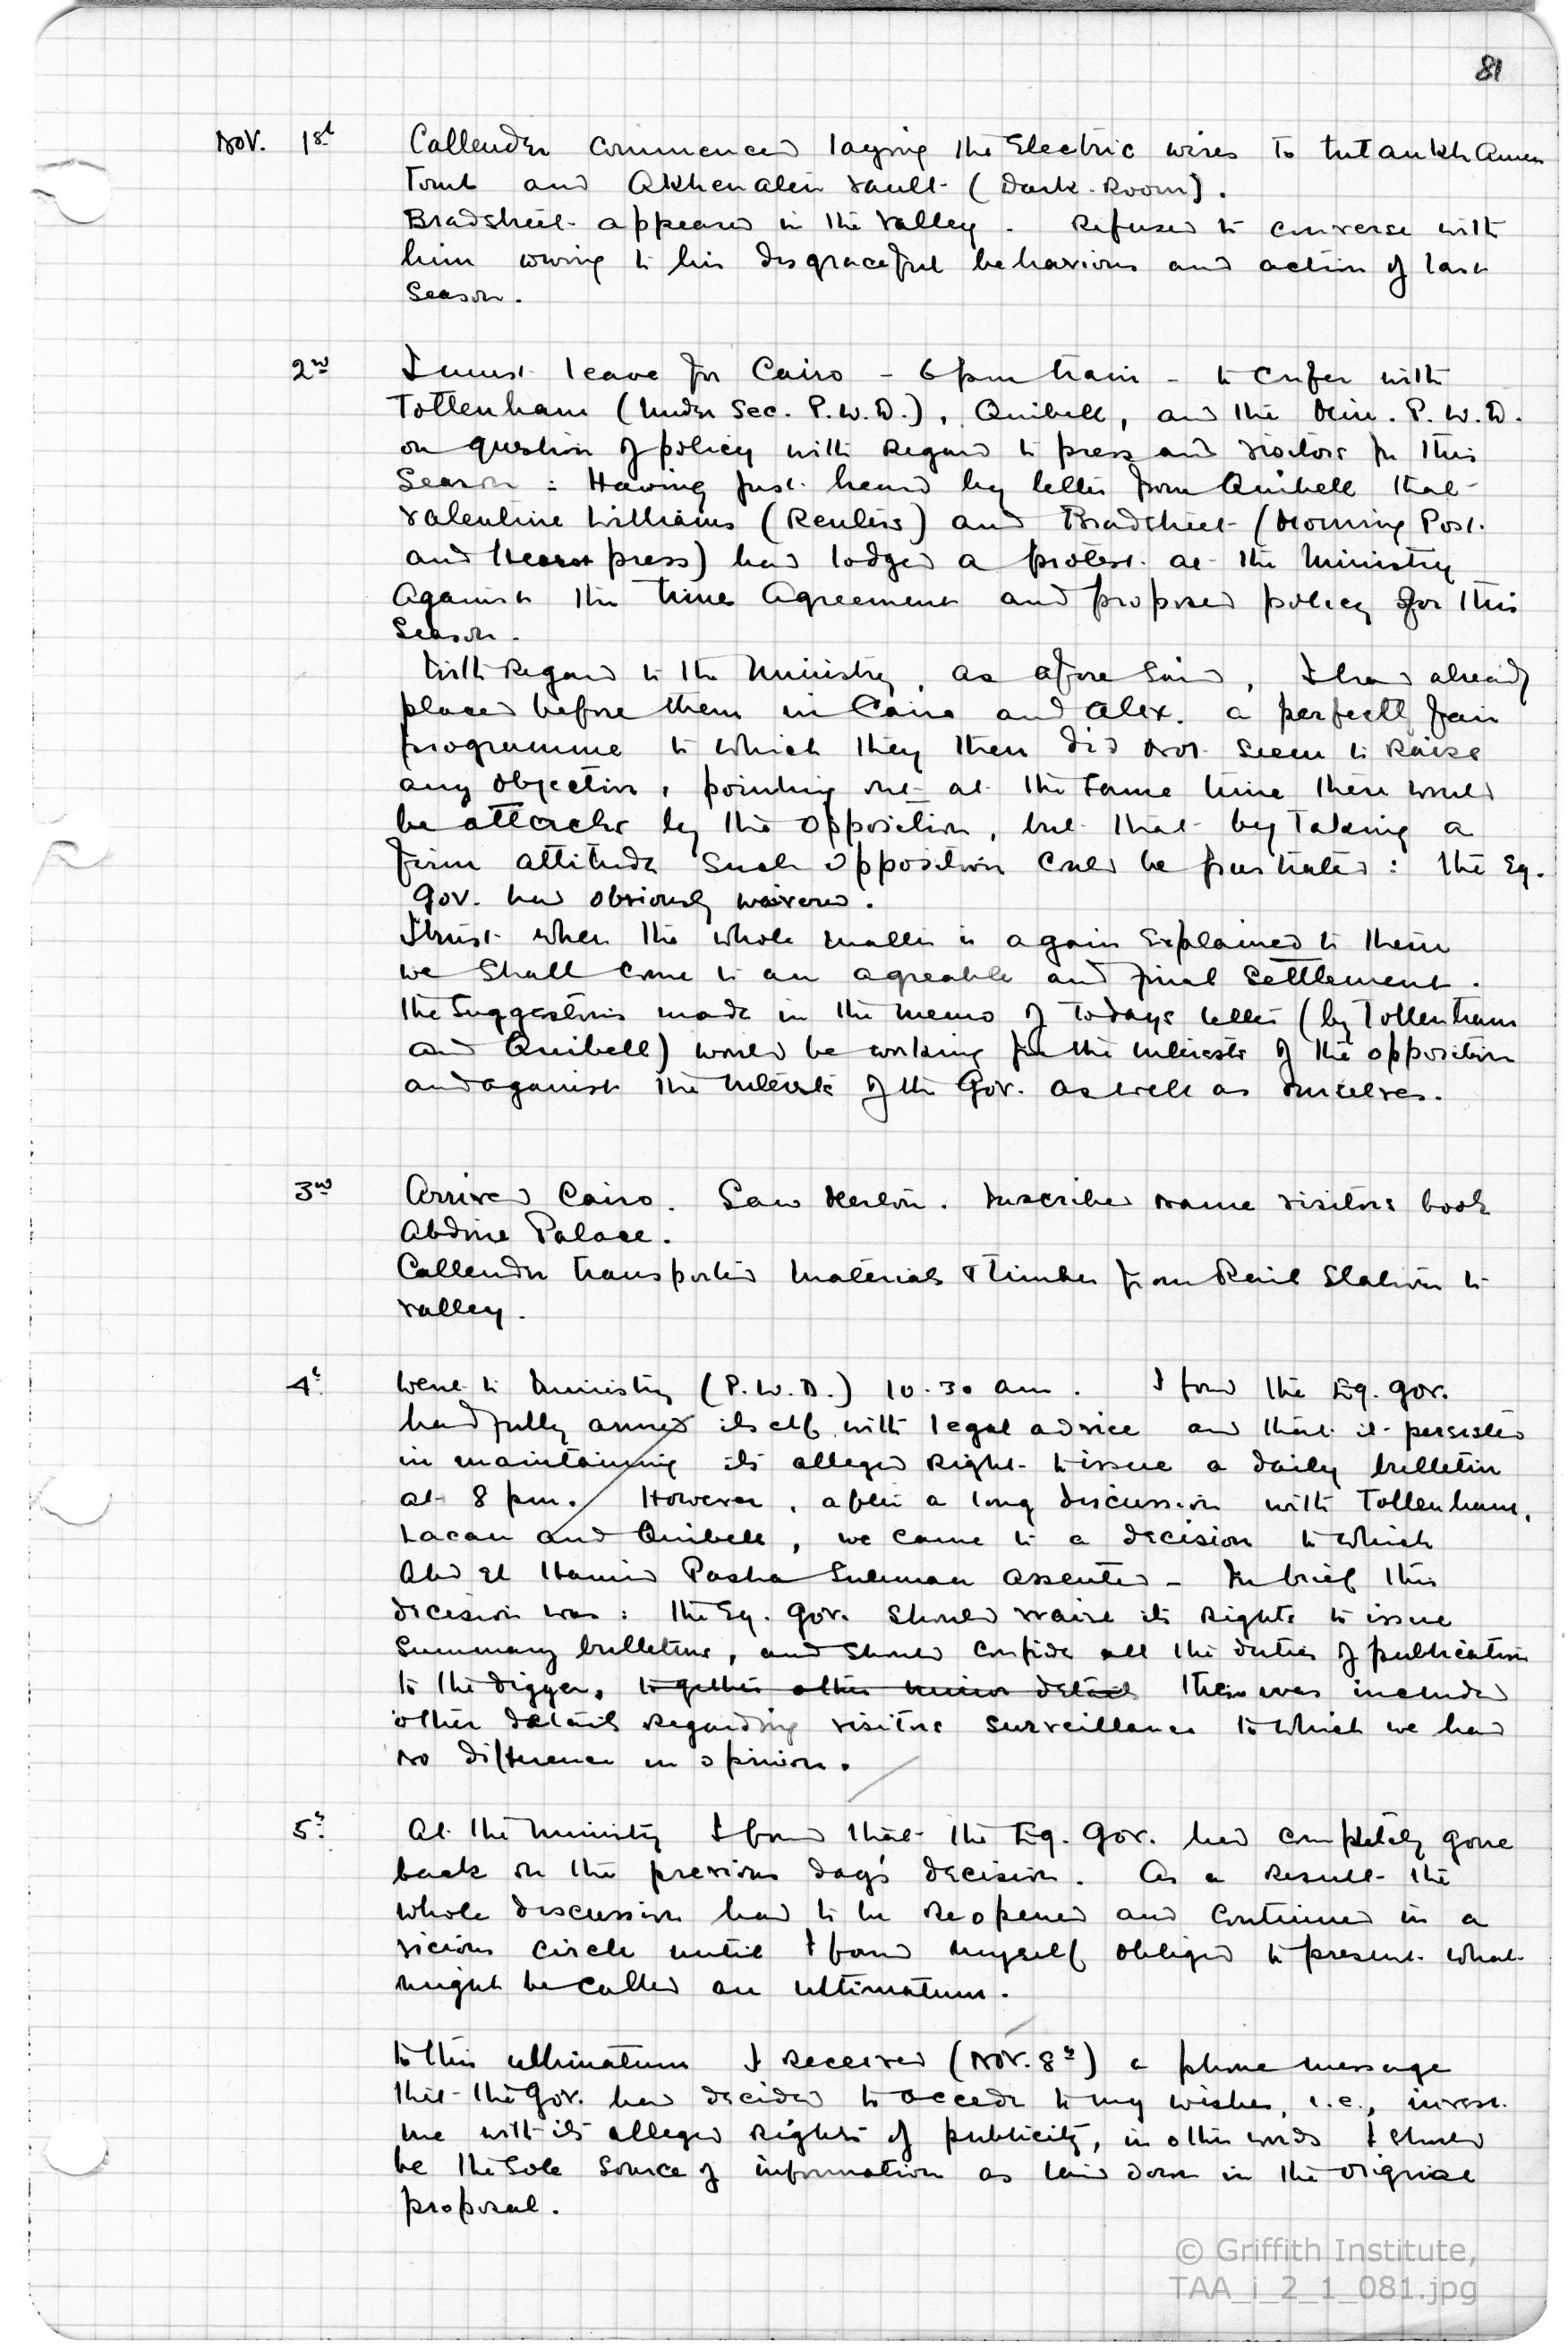 81
Nov. 1st Callender commenced laying the Electric wires to Tutankhamen
Tomb and Akhenaten vault (Dark-Room).
Bradstreet appeared in the Valley. Refused to converse with
him owing to his disgraceful behaviour and action of last
season.
2nd I must leave for Cairo - 6 pm train - to confer with
Tottenham (Under Sec. P.W.D.), Quibell, and the Min. P.W.D.
on question of policy with regard to press and visitors for this
Season: Having just heard by letter from Quibell that
Valentine Williams (Reuters) and Bradstreet (Morning Post
and Hearst press) had lodged a protest at the Ministry
against the Times Agreement and proposed policy for this
Season.
With regard to the Ministry, as afore said, I had already
placed before them in Cairo and Alex. a perfectly fair
programme to which they then did not seem to raise
any objection, pointing out at the same time there would
be attacks by the opposition, but that by taking a
firm attitude such opposition could be frustrated: the Eg.
Gov. had obviously waivered.
I trust when the whole matter is again explained to them
we shall come to an agreable and final settlement.
The suggestions made in the memo of todays letter (by Tottenham
and Quibell) would be working for the interests of the opposition
and against the interests of the Gov. as well as ourselves.
3rd Arrived Cairo. Saw Merton. Inscribed name visitors book
Abdine Palace.
Callender transported materials & timber from Rail Station to
valley.
4t. Went to Ministry (P.W.D.) 10.30 am. I found the Eg. Gov.
had fully armed itself with legal advice and that it persisted
in maintaining its alleged right to issue a daily bulletin
at 8 pm. However, after a long discussion with Tottenham,
Lacau and Quibell, we came to a decision to which
Abd El Hamid Pasha Suleman assented - In brief this
decision was: the Eg. Gov. should waive its rights to issue
summary bulletins, and should confide all the duties of publication
to the digger, together other minor details there was included
other details regarding visitors surveillance to which we had
no difference in opinion.
5th. At the Ministry I found that the Eg. Gov. had completely gone
back on the previous day's decision. As a result the
whole discussion had to be reopened and continued in a
vicious circle until I found myself obliged to present what
might be called an ultimatum.
To this ultimatum I received (Nov. 8th) a phone message
that the Gov. had decided to accede to my wishes, i.e., invest
me with its alleged rights of publicity, in other words I should
be the sole source of information as laid down in the original
proposal.
© Griffith Institute,
TAA_i_2_1_081.jpg